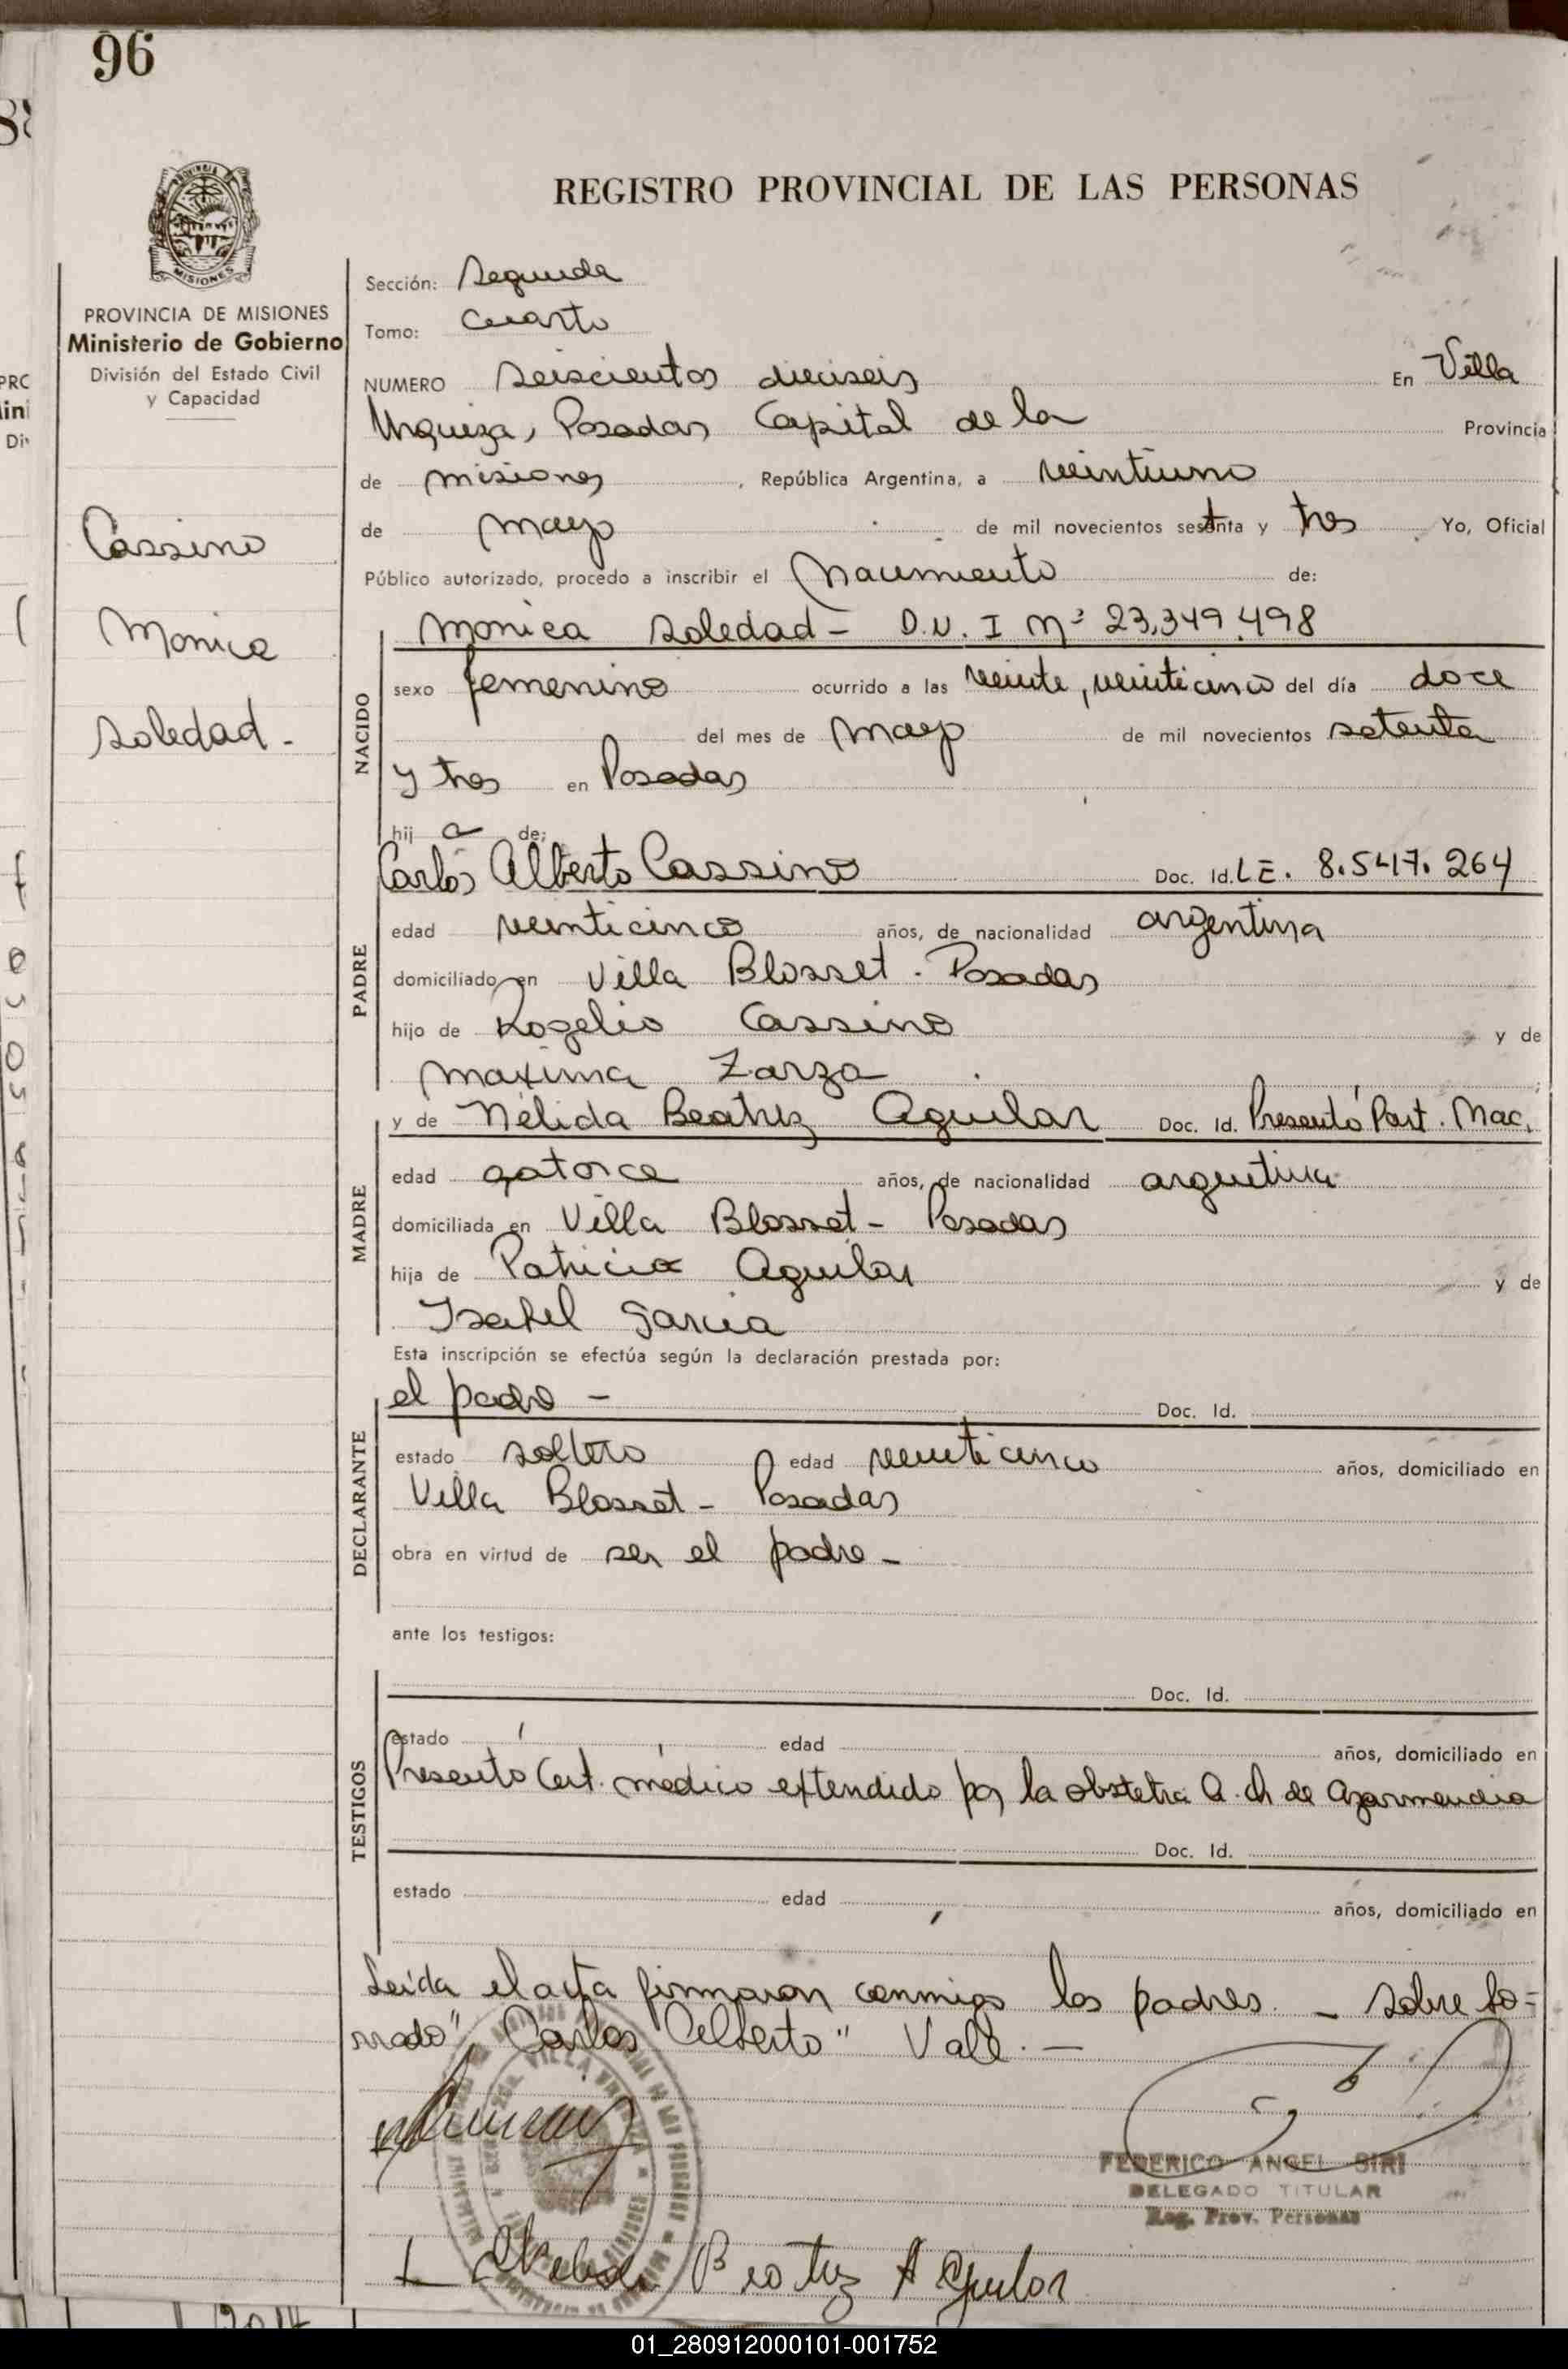 96
REGISTRO PROVINCIAL DE LAS PERSONAS
MISIONES
PROVINCIA DE MISIONES
Ministerio de Gobierno
División del Estado Civil
y Capacidad
Cassino
Monica
Soledad -
Sección: Segunda
Tomo: Cuarto
NUMERO Seiscientos dieciseis En Villa
Urquiza, Posadas Capital de la Provincia
de misiones, República Argentina, a veintiuno
de mayo de mil novecientos setenta y tres Yo, Oficial
Público autorizado, procedo a inscribir el Nacimiento de:
NACIDO
Monica Soledad - D.N.I Nº 23,349.498
sexo femenino ocurrido a las veinte, veinticinco del día doce
del mes de Mayo de mil novecientos setenta
y tres en Posadas
hij a de:
PADRE
Carlos Alberto Cassino Doc. Id. L.E. 8.547.264
edad veinticinco años, de nacionalidad argentina
domiciliado en Villa Blosset. Posadas
hijo de Rogelio Cassino y de
Maxima Zarza
MADRE
y de Nélida Beatriz Aguilar Doc. Id. Presentó Part. Nac.
edad catorce años, de nacionalidad argentina
domiciliada en Villa Blosset - Posadas
hija de Aguilar y de
Isabel Garcia
Esta inscripción se efectúa según la declaración prestada por:
DECLARANTE
el padre - Doc. Id.
estado soltero edad veinticinco años, domiciliado en
Villa Blosset - Posadas
obra en virtud de ser el padre -
ante los testigos:
TESTIGOS
Doc. Id.
estado edad años, domiciliado en
Presentó Cert. médico extendido por la obstetra A. Ch de
Doc. Id.
estado edad años, domiciliado en
Leída el acta firmaron conmigo los padres. - Sobre bo=
rrado "Carlos Alberto" Vale. -
FEDERICO ANGEL SIRI
DELEGADO TITULAR
Reg. Prov. Personas
Beatriz Aguilar
01_280912000101-001752